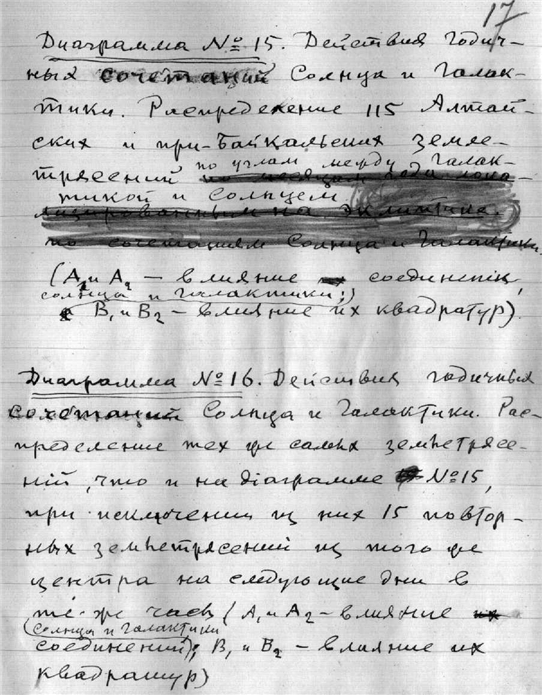 17
Диаграмма № 15. Действия годич-
ных сочетаций Солнца и Галак-
тики. Распределение 115 Алтай-
ских и при-Байкальских земле-
трясений по углам между Галак-
тикой и Солнцем
по сочетаниям Солнца и Галактики.
(А₁ и А₂ — влияние соединений
солнца и галактики;)
В₁ и В₂ — влияние их квадратур).
Диаграмма № 16. Действия годичных
сочетаций Солнца и Галактики. Рас-
пределение тех же самых землетрясе-
ній, что и на діаграмме № 15,
при исключении из них 15 повтор-
ных землетрясений из того же
центра на следующие дни в
те же часы (А₁ и А₂ — влияние
(солнца и галактики
соединений); В₁ и В₂ — влияние их
квадратур)